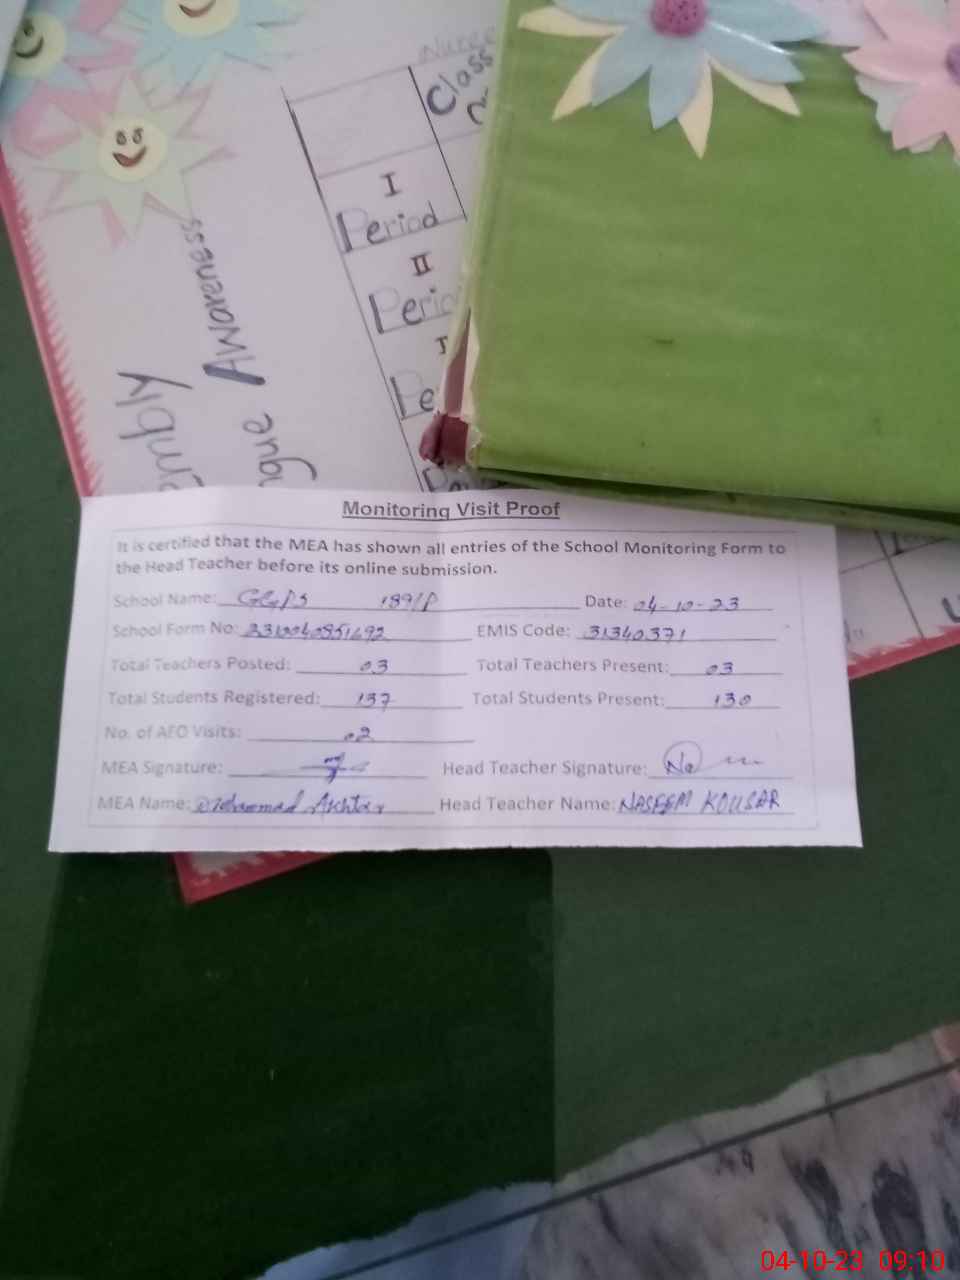 Class
I
Period
II
Period
I
Pe
Awareness
gue
mbly
Monitoring Visit Proof
It is certified that the MEA has shown all entries of the School Monitoring Form to
the Head Teacher before its online submission.
School Name: GGPS 189/P Date: 04-10-23
School Form No: EMIS Code: 31340371
Total Teachers Posted: 03 Total Teachers Present: 03
Total Students Registered: 137 Total Students Present: 130
No. of AEO Visits: 02
MEA Signature: Head Teacher Signature:
MEA Name: Mohammad Akhtar Head Teacher Name: NASEEM KOUSAR
04-10-23 09:10